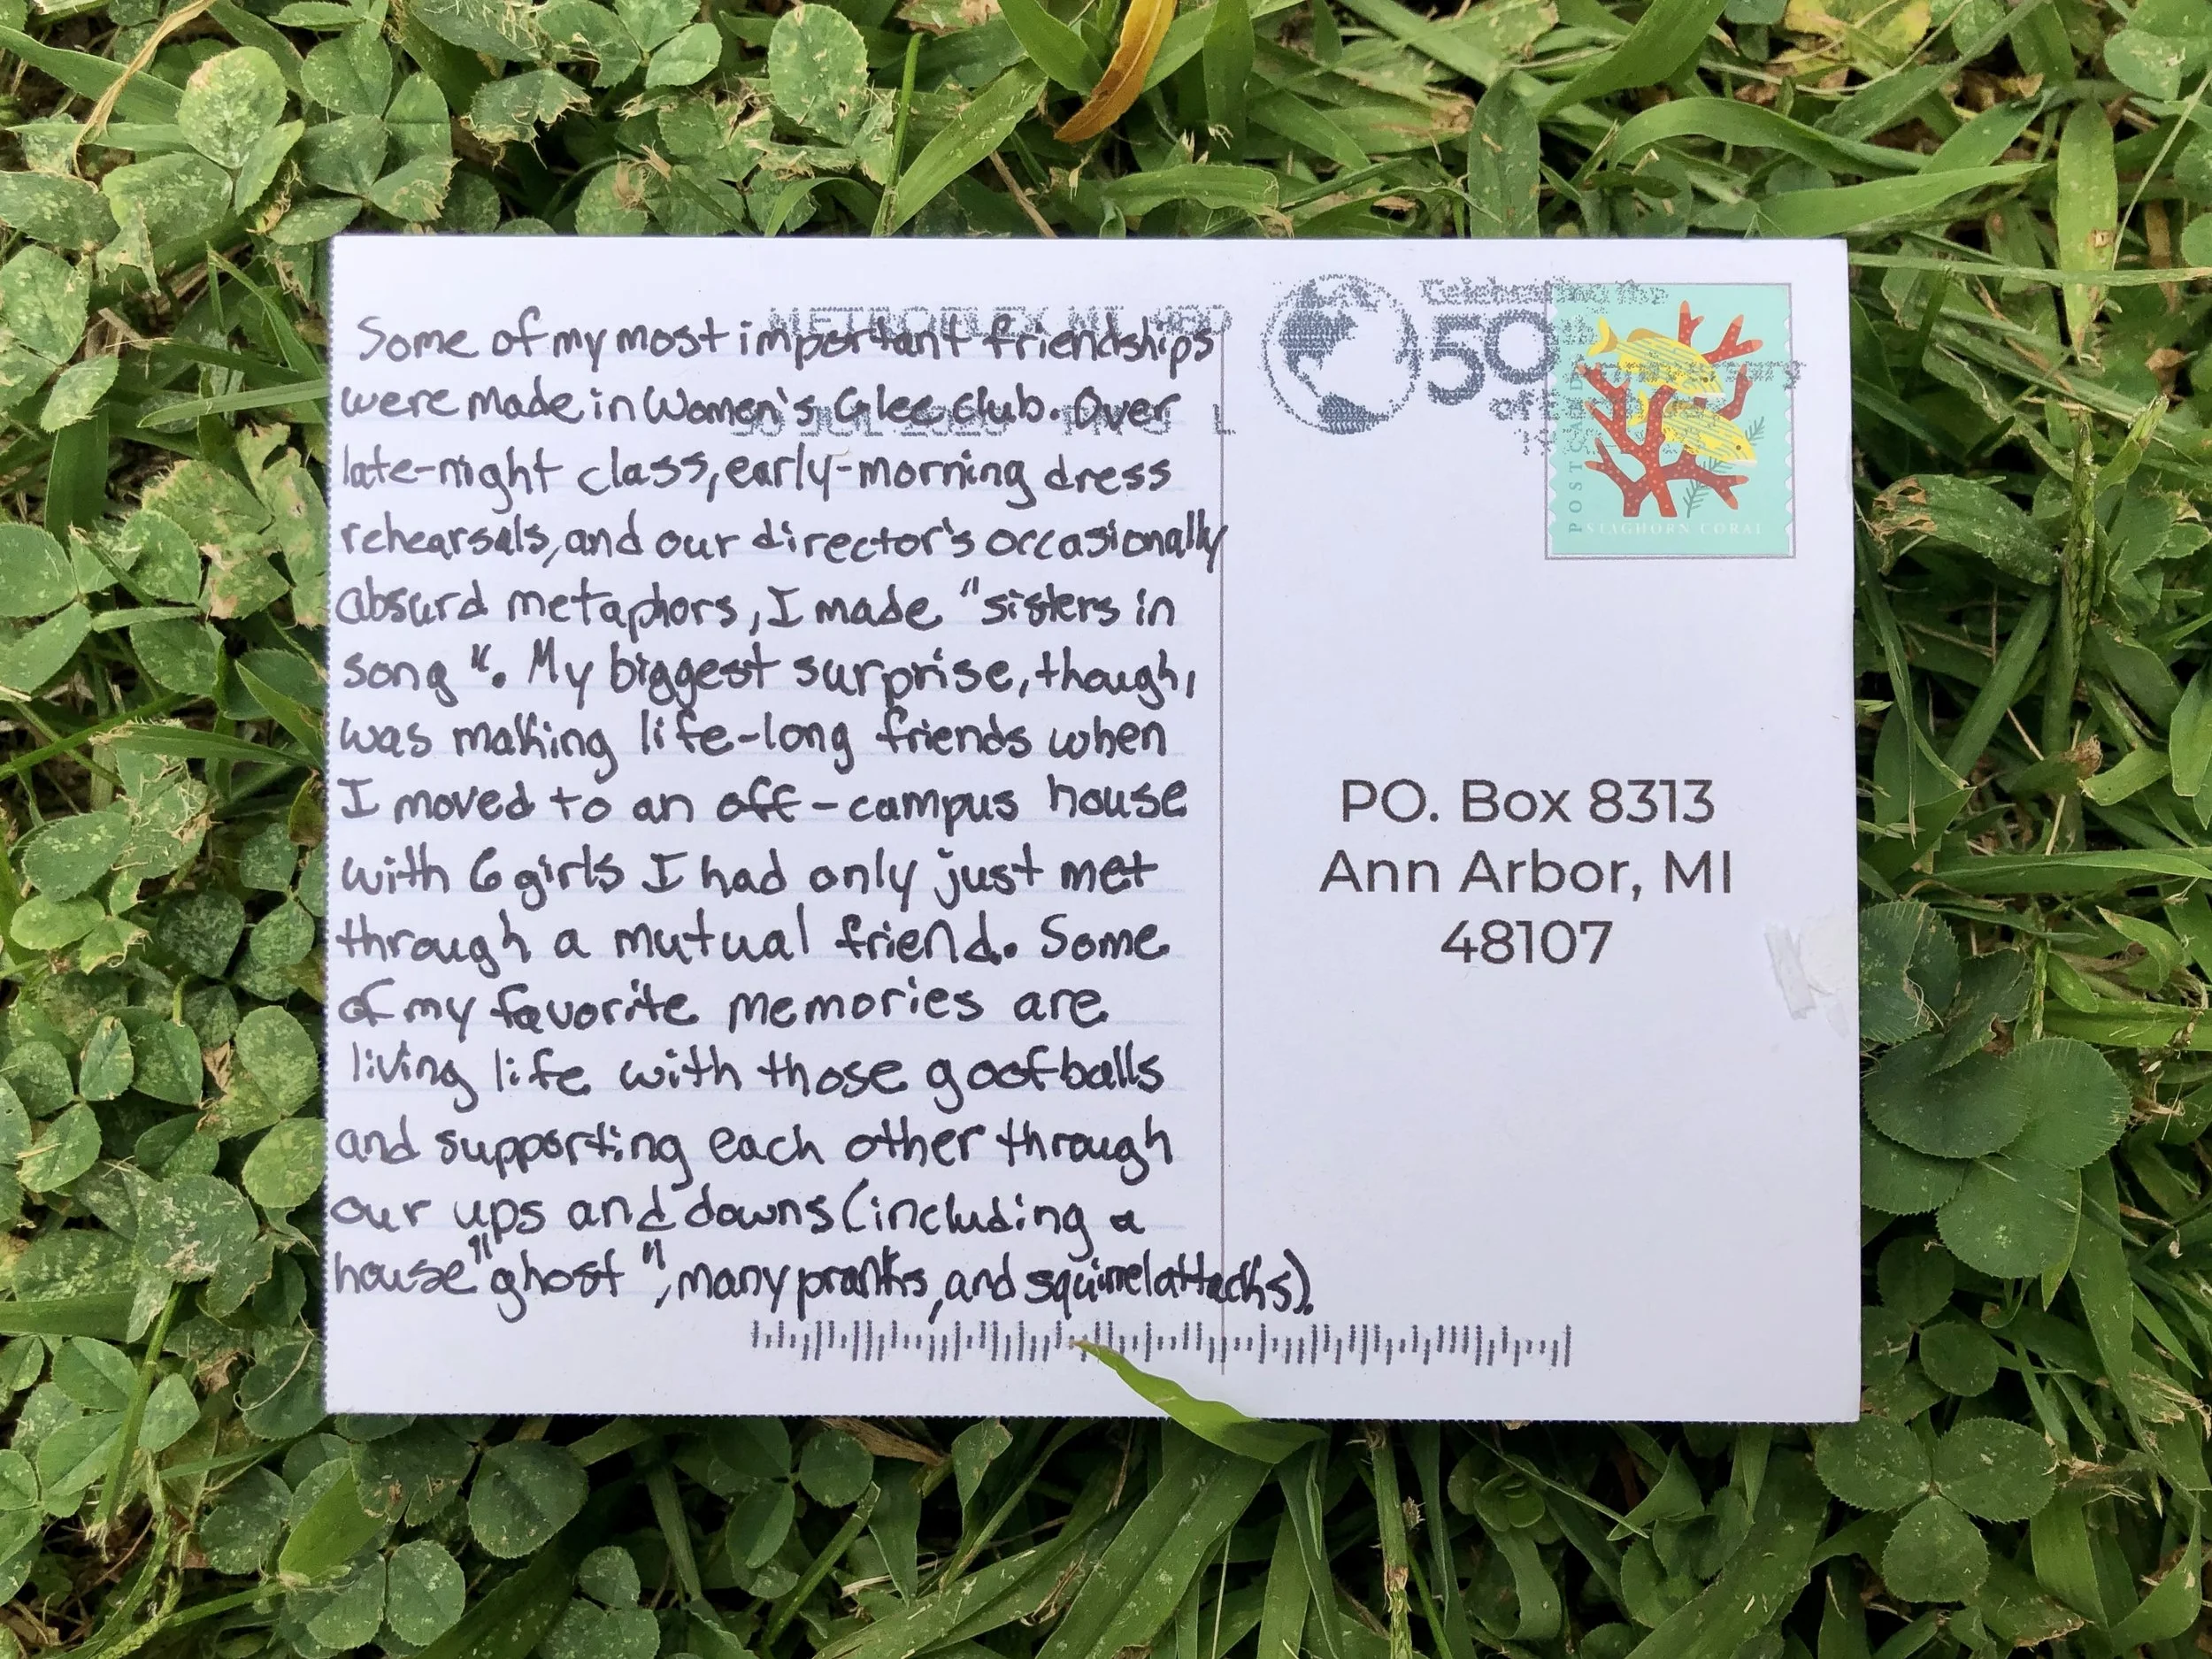 Some of my most important friendships
were made in Women's Glee club. Over
late-night class, early-morning dress
rehearsals, and our director's occasionally
absurd metaphors, I made "sisters in
song". My biggest surprise, though,
was making life-long friends when
I moved to an off-campus house
with 6 girls I had only just met
through a mutual friend. Some
of my favorite memories are
living life with those goofballs
and supporting each other through
our ups and downs (including a
house "ghost", many pranks, and squirrel attacks).
METROPLEX MI 480
30 JUL 2020 PM 3 L
Celebrating the
50th
Anniversary
of
POSTCARD
STAGHORN CORAL
PO. Box 8313
Ann Arbor, MI
48107